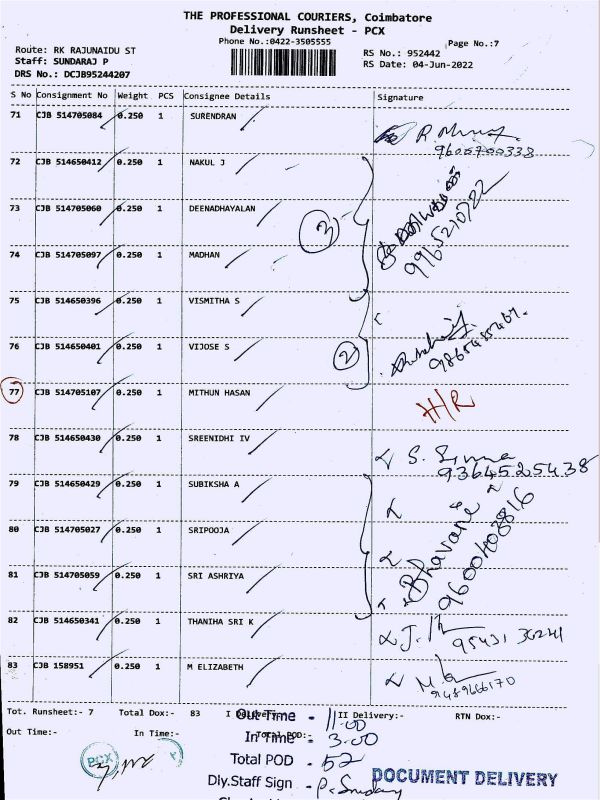 THE PROFESSIONAL COURIERS, Coimbatore
Delivery Runsheet - PCX
Phone No.:0422-3505555
Page No.:7
Route: RK RAJUNAIDU ST
RS No.: 952442
Staff: SUNDARAJ P
RS Date: 04-Jun-2022
DRS No.: DCJB95244207
S No Consignment No Weight PCS Consignee Details Signature
71 CJB 514705084 0.250 1 SURENDRAN
9605700338
72 CJB 514650412 0.250 1 NAKUL J
73 CJB 514705060 0.250 1 DEENADHAYALAN
3
9965210722
74 CJB 514705097 0.250 1 MADHAN
75 CJB 514650396 0.250 1 VISMITHA S
76 CJB 514650401 0.250 1 VIJOSE S
2
77 CJB 514705107 0.250 1 MITHUN HASAN
H/R
78 CJB 514650430 0.250 1 SREENIDHI IV
9364525438
79 CJB 514650429 0.250 1 SUBIKSHA A
80 CJB 514705027 0.250 1 SRIPOOJA
Bhavani
9600403816
81 CJB 514705059 0.250 1 SRI ASHRIYA
82 CJB 514650341 0.250 1 THANIHA SRI K
83 CJB 158951 0.250 1 M ELIZABETH
9489666170
Tot. Runsheet:- 7 Total Dox:- 83 I Delivery:- II Delivery:- RTN Dox:-
Out Time - 11.00
Out Time:- In Time:- Total POD:-
In Time - 3.00
PCX
Total POD - 52
Dly.Staff Sign -
DOCUMENT DELIVERY